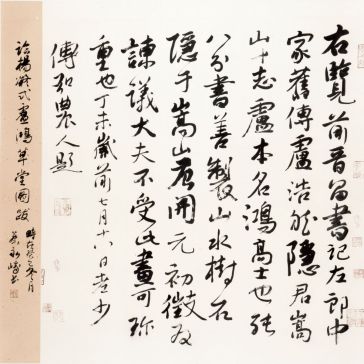 右覽前晉昌書記左郎中
家舊傳盧浩然隱君嵩
山十志盧本名鴻高士也能
八分書善製山水樹石
隱于嵩山唐開元初徵為
諫議大夫不受此畫可珎
重也丁未歲前七月十八日老少
傅弘農人題
臨楊凝式盧鴻草堂圖跋